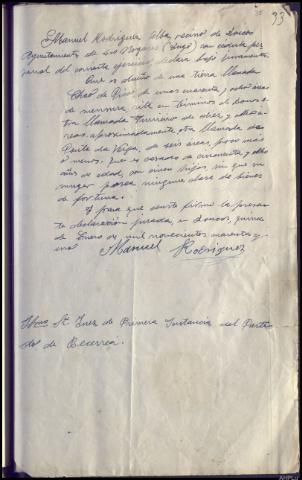 93
Manuel Rodriguez Alba, vecino de Doncos
Ayuntamiento de Los Nogales (Lugo) con cedula per
sonal del corriente ejercicio, declara bajo juramento
Que es dueño de una tierra llamada
Chao de de unas cuarenta y ocho areas
de mensura sita en terminos de Doncos
otra llamada de diez y ocho a
reas, aproximadamente, otra llamada da
Veiga, de seis areas, poco mas
o menos. Que es casado de cuarenta y ocho
años de edad, con cinco hijos sin que su
mujer posea ninguna clase de bienes
de fortuna.
Y para que conste firmo la presen
te declaración jurada, en Doncos, quince
de Enero de mil novecientos cuarenta y
uno.
Manuel Rodriguez
Ilmo Sr. Juez de Primera Instancia del Parti
do de Becerreá.
AHPLU